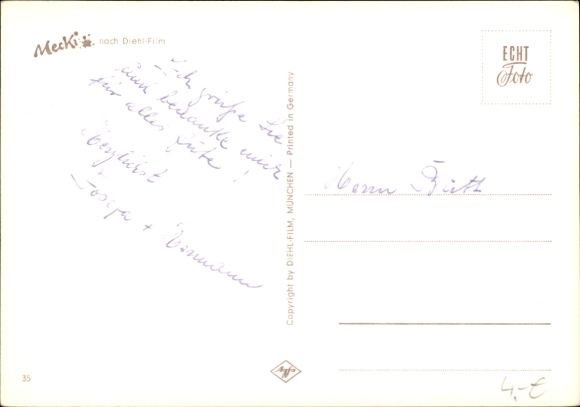 Mecki nach Diehl-Film
ECHT
Foto
Ich grüße Sie
und bedanke mich
für alles Gute!
Herzlichst
+ Hermann
Herrn
Copyright by DIEHL-FILM, MÜNCHEN — Printed in Germany
Agfa
35
4,-€